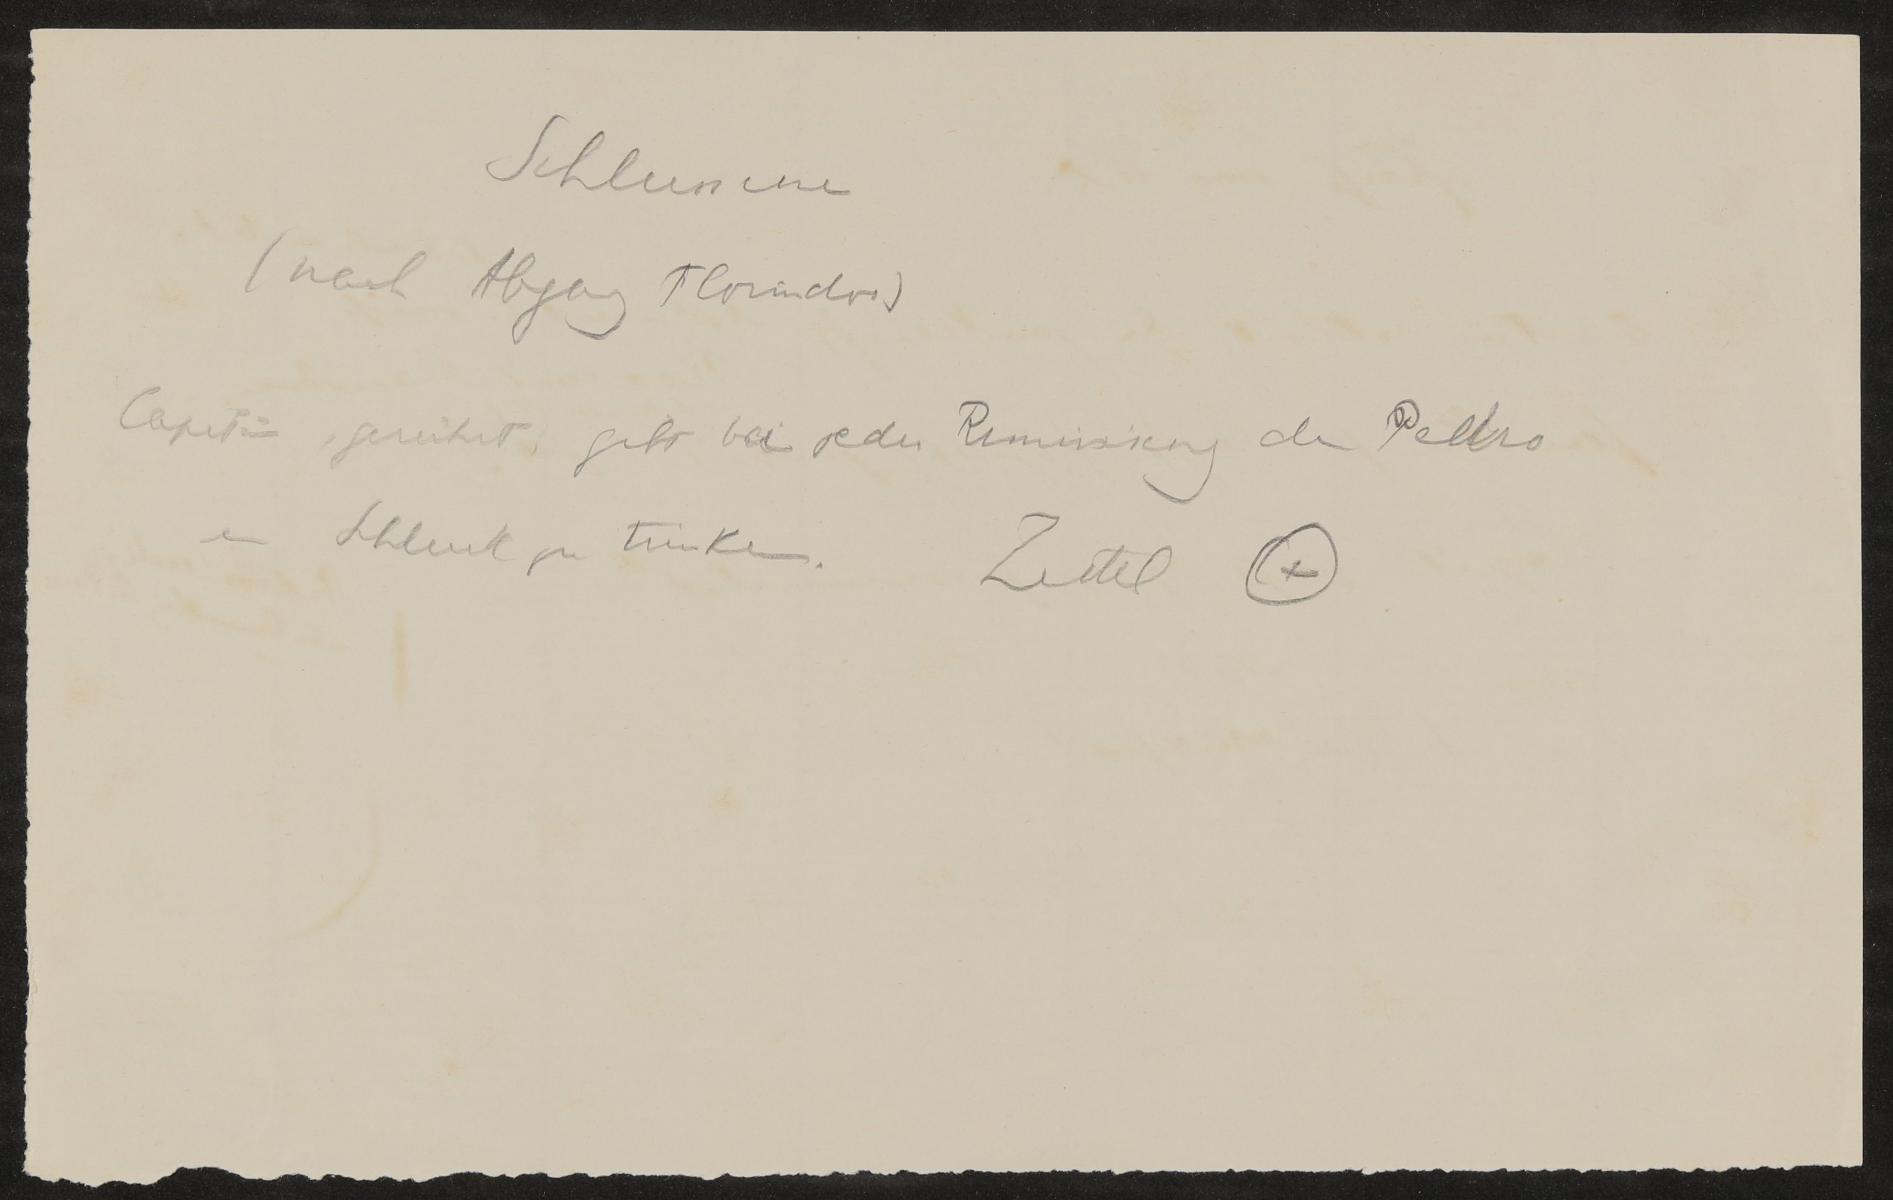 Schlussscene
(nach Abgang Florindos)
Capitän, gerührt, gibt bei jeder Reminiscenz dem Pedro
ein Schluck zu trinken. Zettel +